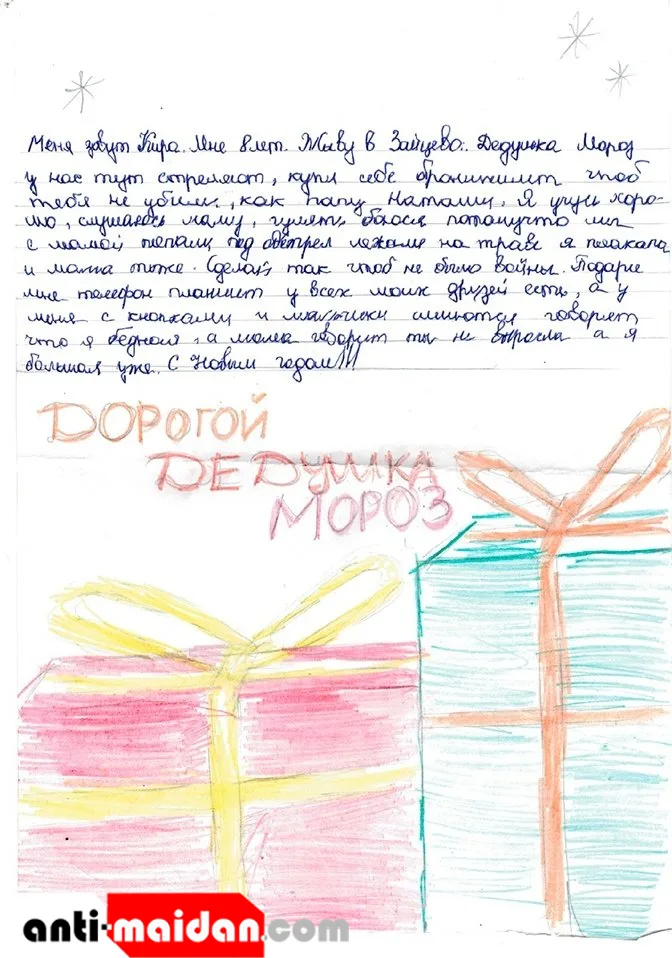 Меня зовут Кира. Мне 8 лет. Живу в Зайцево. Дедушка Мороз
у нас тут стреляют, купи себе бронижилет чтоб
тебя не убили, как папу Наташи, Я учусь хоро-
шо, слушаюсь маму, гулять боюся потомучто мы
с мамой попали под обстрел лежали на траве я плакала
и мама тоже. Сделай так чтоб не было войны. Подари
мне телефон планшет у всех моих друзей есть, а у
меня с кнопками и мальчики смиются говорят
что я бедная, а мама говорит ты не взросла а я
большая уже. С Новым годом!!!
ДОРОГОЙ
ДЕДУШКА
МОРОЗ
anti-maidan.com